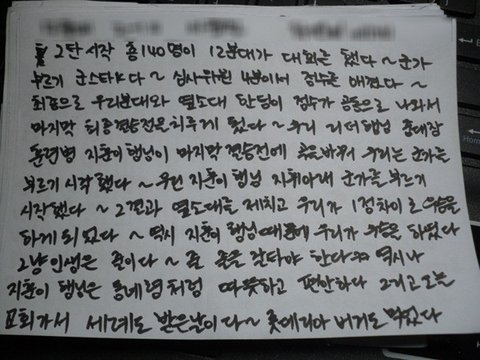 2탄 시작 총 140명이 12분대가 대회를 했다~ 군가
부르기 군스타K다~ 심사위원 4분이서 점수를 매겼다~
최종으로 우리분대와 옆소대 한팀이 점수가 공동으로 나와서
마지막 최종결승전을 치루게 됬다~ 우리 리더 햄님 중대장
훈련병 지훈이 햄님이 마지막 결승전에 곡을 바꿔 우리는 군가를
부르기 시작했다~ 우린 지훈이 햄님 지휘아래 군가를 부르기
시작했다~ 그결과 옆소대를 제치고 우리가 1점차이로 우승을
하게 되었다~ 역시 지훈이 햄님 때문에 우리가 우승을 하였다
그냥 인생은 줄이다~ 줄 줄을 잘타야 한다 역시나
지훈이 햄님은 동네형처럼 따뜻하고 편안하다 그리고 오늘
교회가서 세례도 받은날이다~ 롯데리아 버거도 먹었다